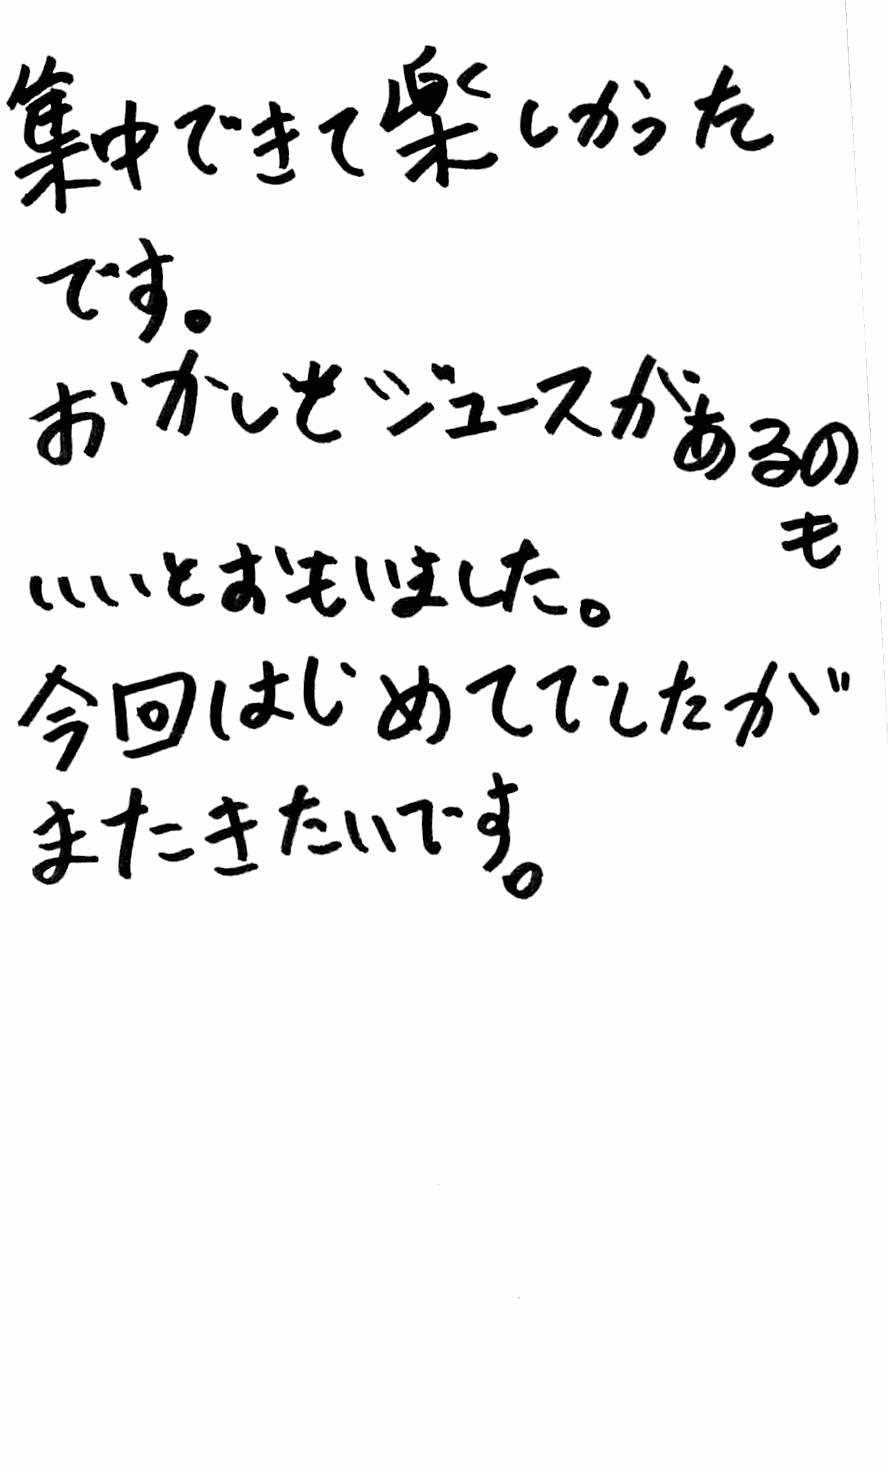 集中できて楽しかった
です。
おかしとジュースがあるの
も
いいとおもいました。
今回はじめてでしたが
またきたいです。